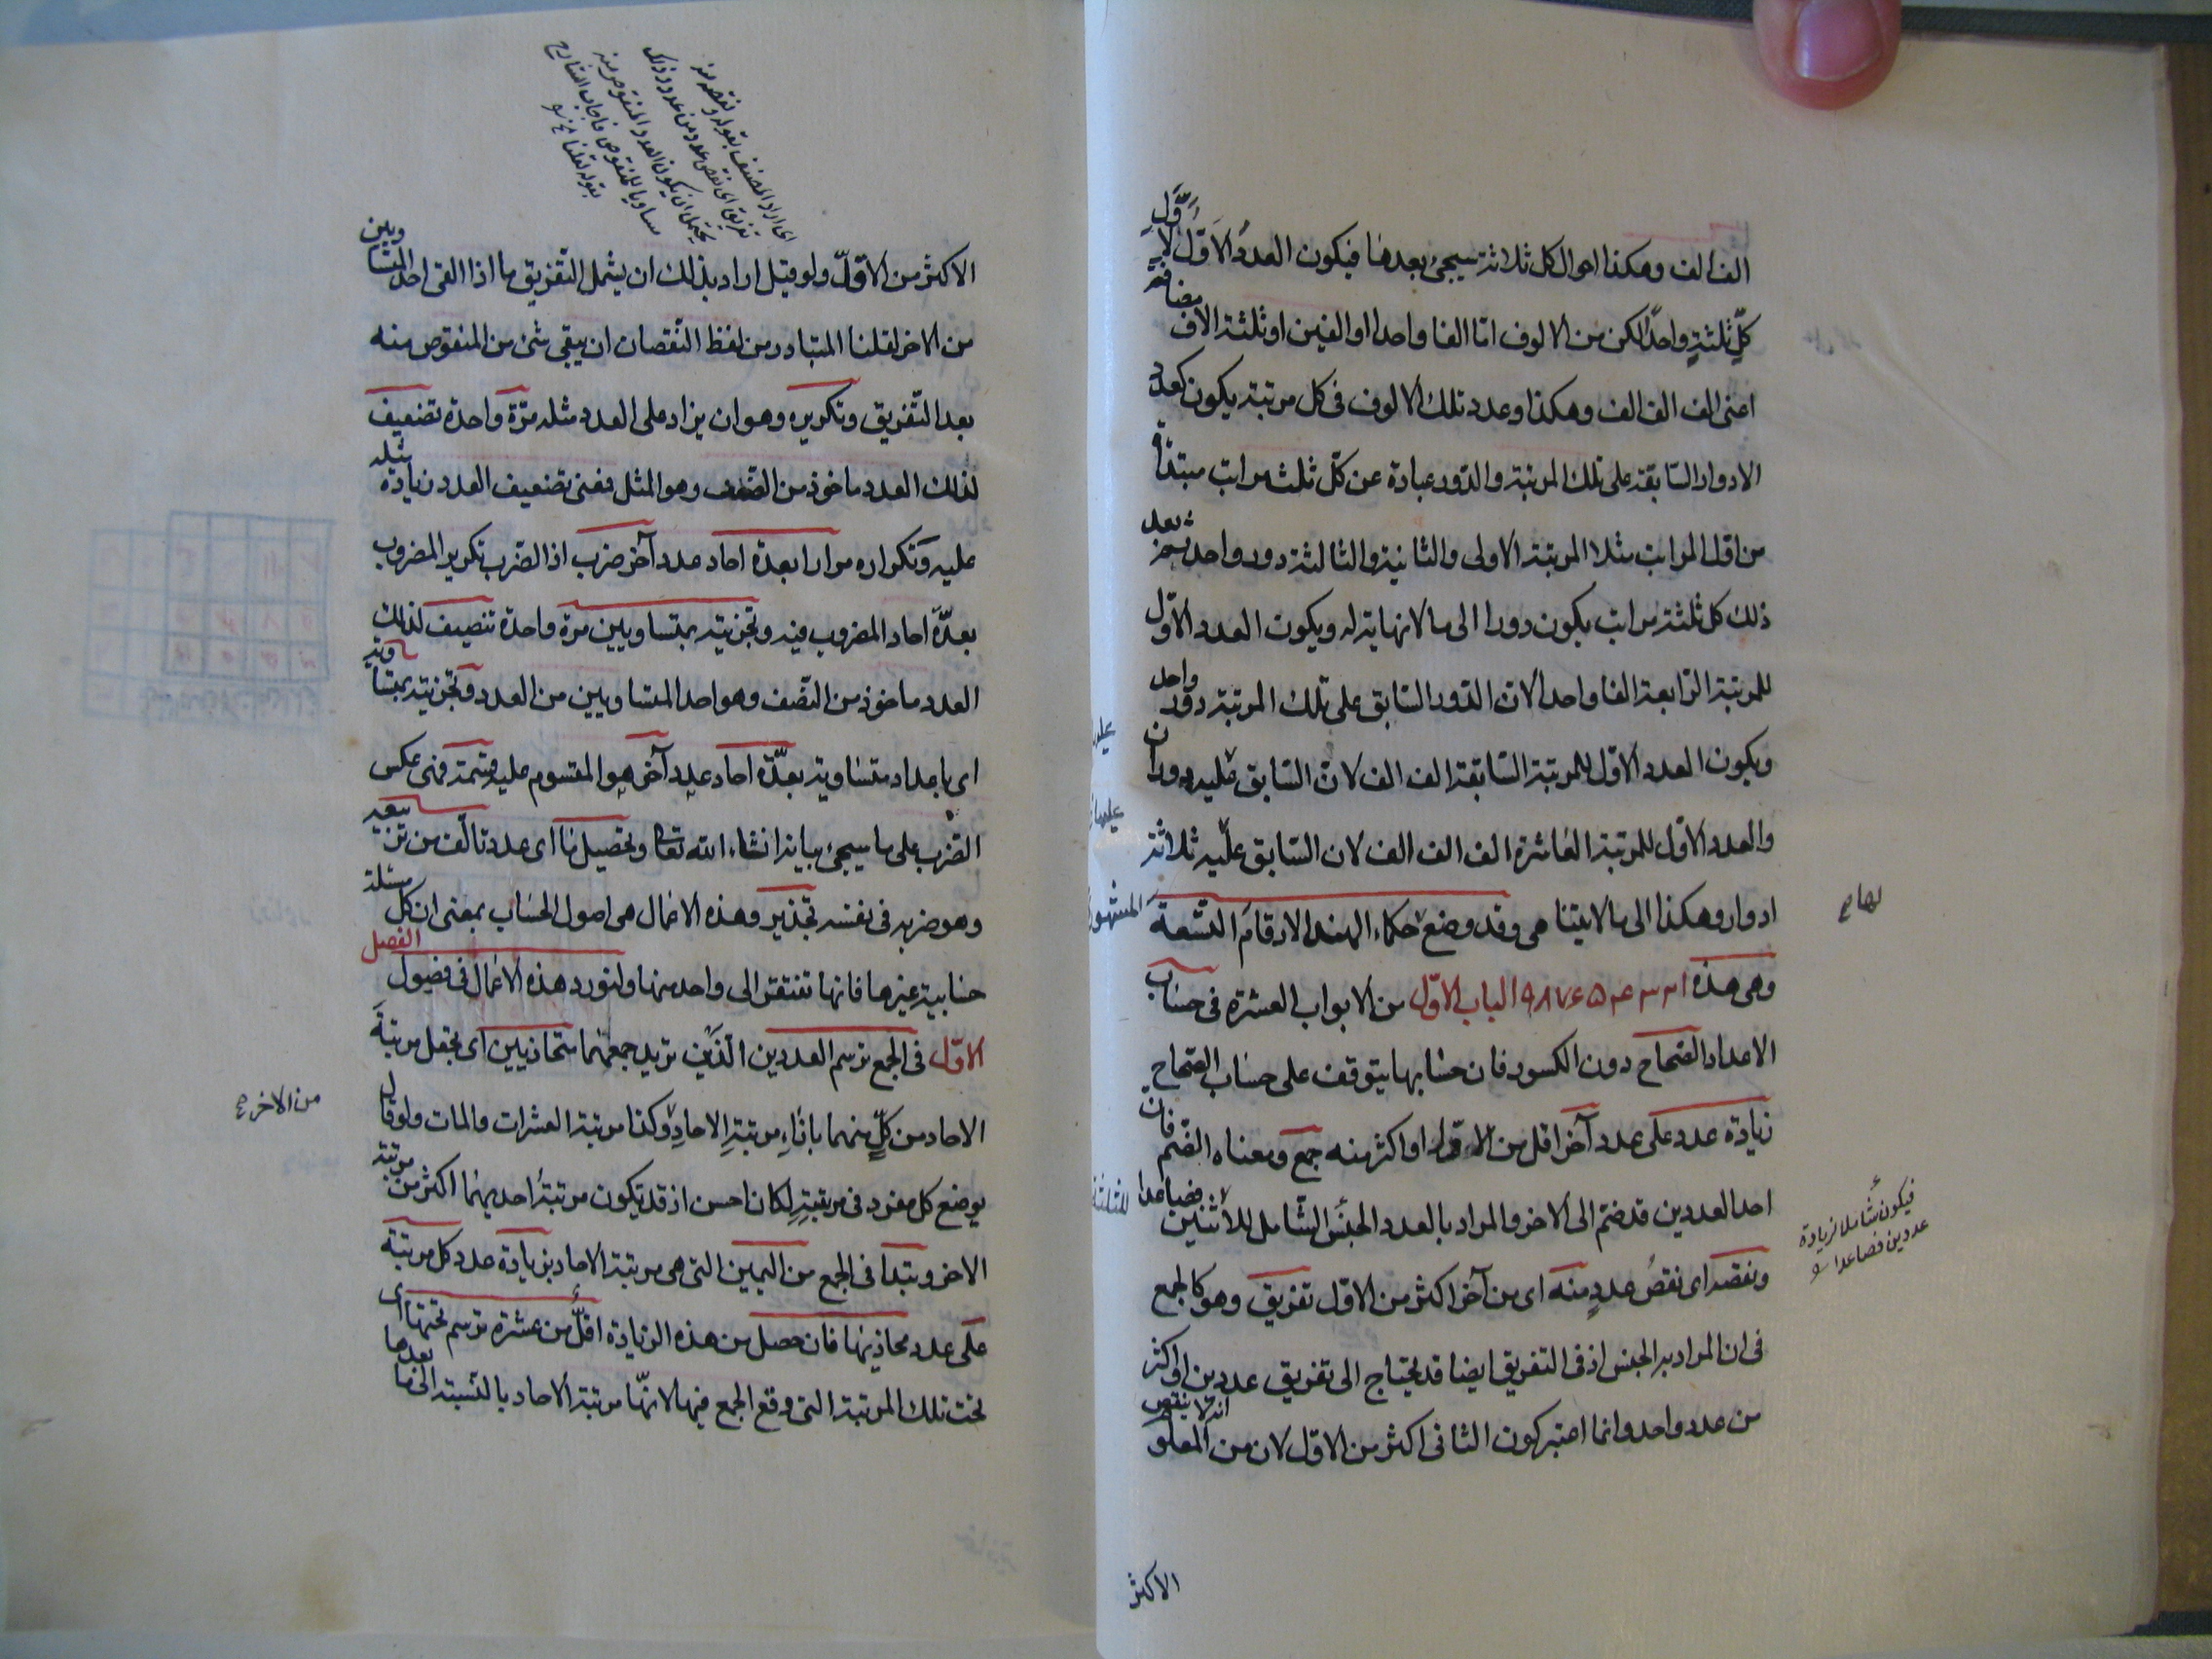 الف الف وهكذا احوال كل ثلاثة سيجئ بعدها فيكون العدد الاول لاول
كل ثلثة واحدا لكن من الالوف اما الفا واحدا او الفين او ثلثة الاف مضافة
اعنى الف الف الف وهكذا وعدد تلك الالوف فى كل مرتبة يكون كعدد
الادوار السابقة على تلك المرتبة والدور عبارة عن كل ثلث مراتب مبتدأة
من اقل المراتب مثلا المرتبة الاولى والثانية والثالثة دور واحد ثم بعد
ذلك كل ثلثة مراتب يكون دورا الى ما لا نهاية له ويكون العدد الاول
للمرتبة الرابعة الفا واحدا لان الدور السابق على تلك المرتبة دور واحد
ويكون العدد الاول للمرتبة السابعة الف الف لان السابق عليه دوران
والعدد الاول للمرتبة العاشرة الف الف الف لان السابق عليه ثلاثة
ادوار وهكذا الى ما لا يتناهى وقد وضع حكماء الهند الارقام التسعة المشهورة
وهى هذه ١ ٢ ٣ ٤ ٥ ٦ ٧ ٨ ٩ الباب الاول من الابواب العشرة فى حساب
الاعداد الصحاح دون الكسور فان حسابها يتوقف على حساب الصحاح
زيادة عدد على عدد آخر اقل من الاول او اكثر منه جمع ومعناه الضم فان
احد العددين قد ضم الى الاخر والمراد بالعدد الجنس الشامل للاثنين فصاعدا
ونقصه اى نقص عدد منه اى من آخر اكثر من الاول تفريق وهو كالجمع
فى ان المراد به الجنس اذ فى التفريق ايضا قد يحتاج الى تفريق عددين او اكثر
من عدد واحد وانما اعتبر كون الثانى اكثر من الاول لان من المعلوم انه لا ينقص
فيكون شاملا لزيادة
عددين فصاعدا
الاكثر
الاكثر من الاقل ولو قيل اراد بذلك ان يشمل التفريق ما اذا القى احد المتساويين
من الاخر لقلنا المتبادر من لفظ النقصان ان يبقى شئ من المنقوص منه
بعد التفريق وتكريره وهو ان يزاد على العدد مثله مرة واحدة تضعيف
لذلك العدد ماخوذ من الضعف وهو المثل فمعنى تضعيف العدد زيادة مثله
عليه وتكراره مرارا بعدة احاد عدد آخر ضرب اذ الضرب تكرير المضروب
بعدة احاد المضروب فيه وتجزيته بمتساويين مرة واحدة تنصيف لذلك
العدد ماخوذ من النصف وهو احد المتساويين من العدد وتجزيته بمتساوية
اى باعداد متساوية بعدة احاد عدد آخر هو المقسوم عليه قسمة فهى عكس
الضرب على ما سيجئ بيانه انشاء الله تعا وتحصيل ما اى عدد تالف من تربيعه
وهو ضربه فى نفسه تجذير وهذه الاعمال هى اصول الحساب بمعنى ان كل مسئلة
حسابية غيرها فانها تفتقر الى واحد منها ولنورد هذه الاعمال فى فصول الفصل
الاول فى الجمع ترسم العددين الذين تريد جمعهما متحاذيين اى تجعل مرتبة
الاحاد من كل منهما بازاء مرتبة الاحاد وكذا مرتبة العشرات والمات ولو قال
يوضع كل مفرد فى مرتبته لكان احسن اذ قد تكون مرتبة احديهما اكثر من مرتبة
الاخر وتبتدا فى الجمع من اليمين التى هى مرتبة الاحاد بزيادة عدد كل مرتبة
على عدد محاذيتها فان حصل من هذه الزيادة اقل من عشرة ترسم تحتها اى
تحت تلك المرتبة التى وقع الجمع فيها لانها مرتبة الاحاد بالنسبة الى ما بعدها
من الاخر